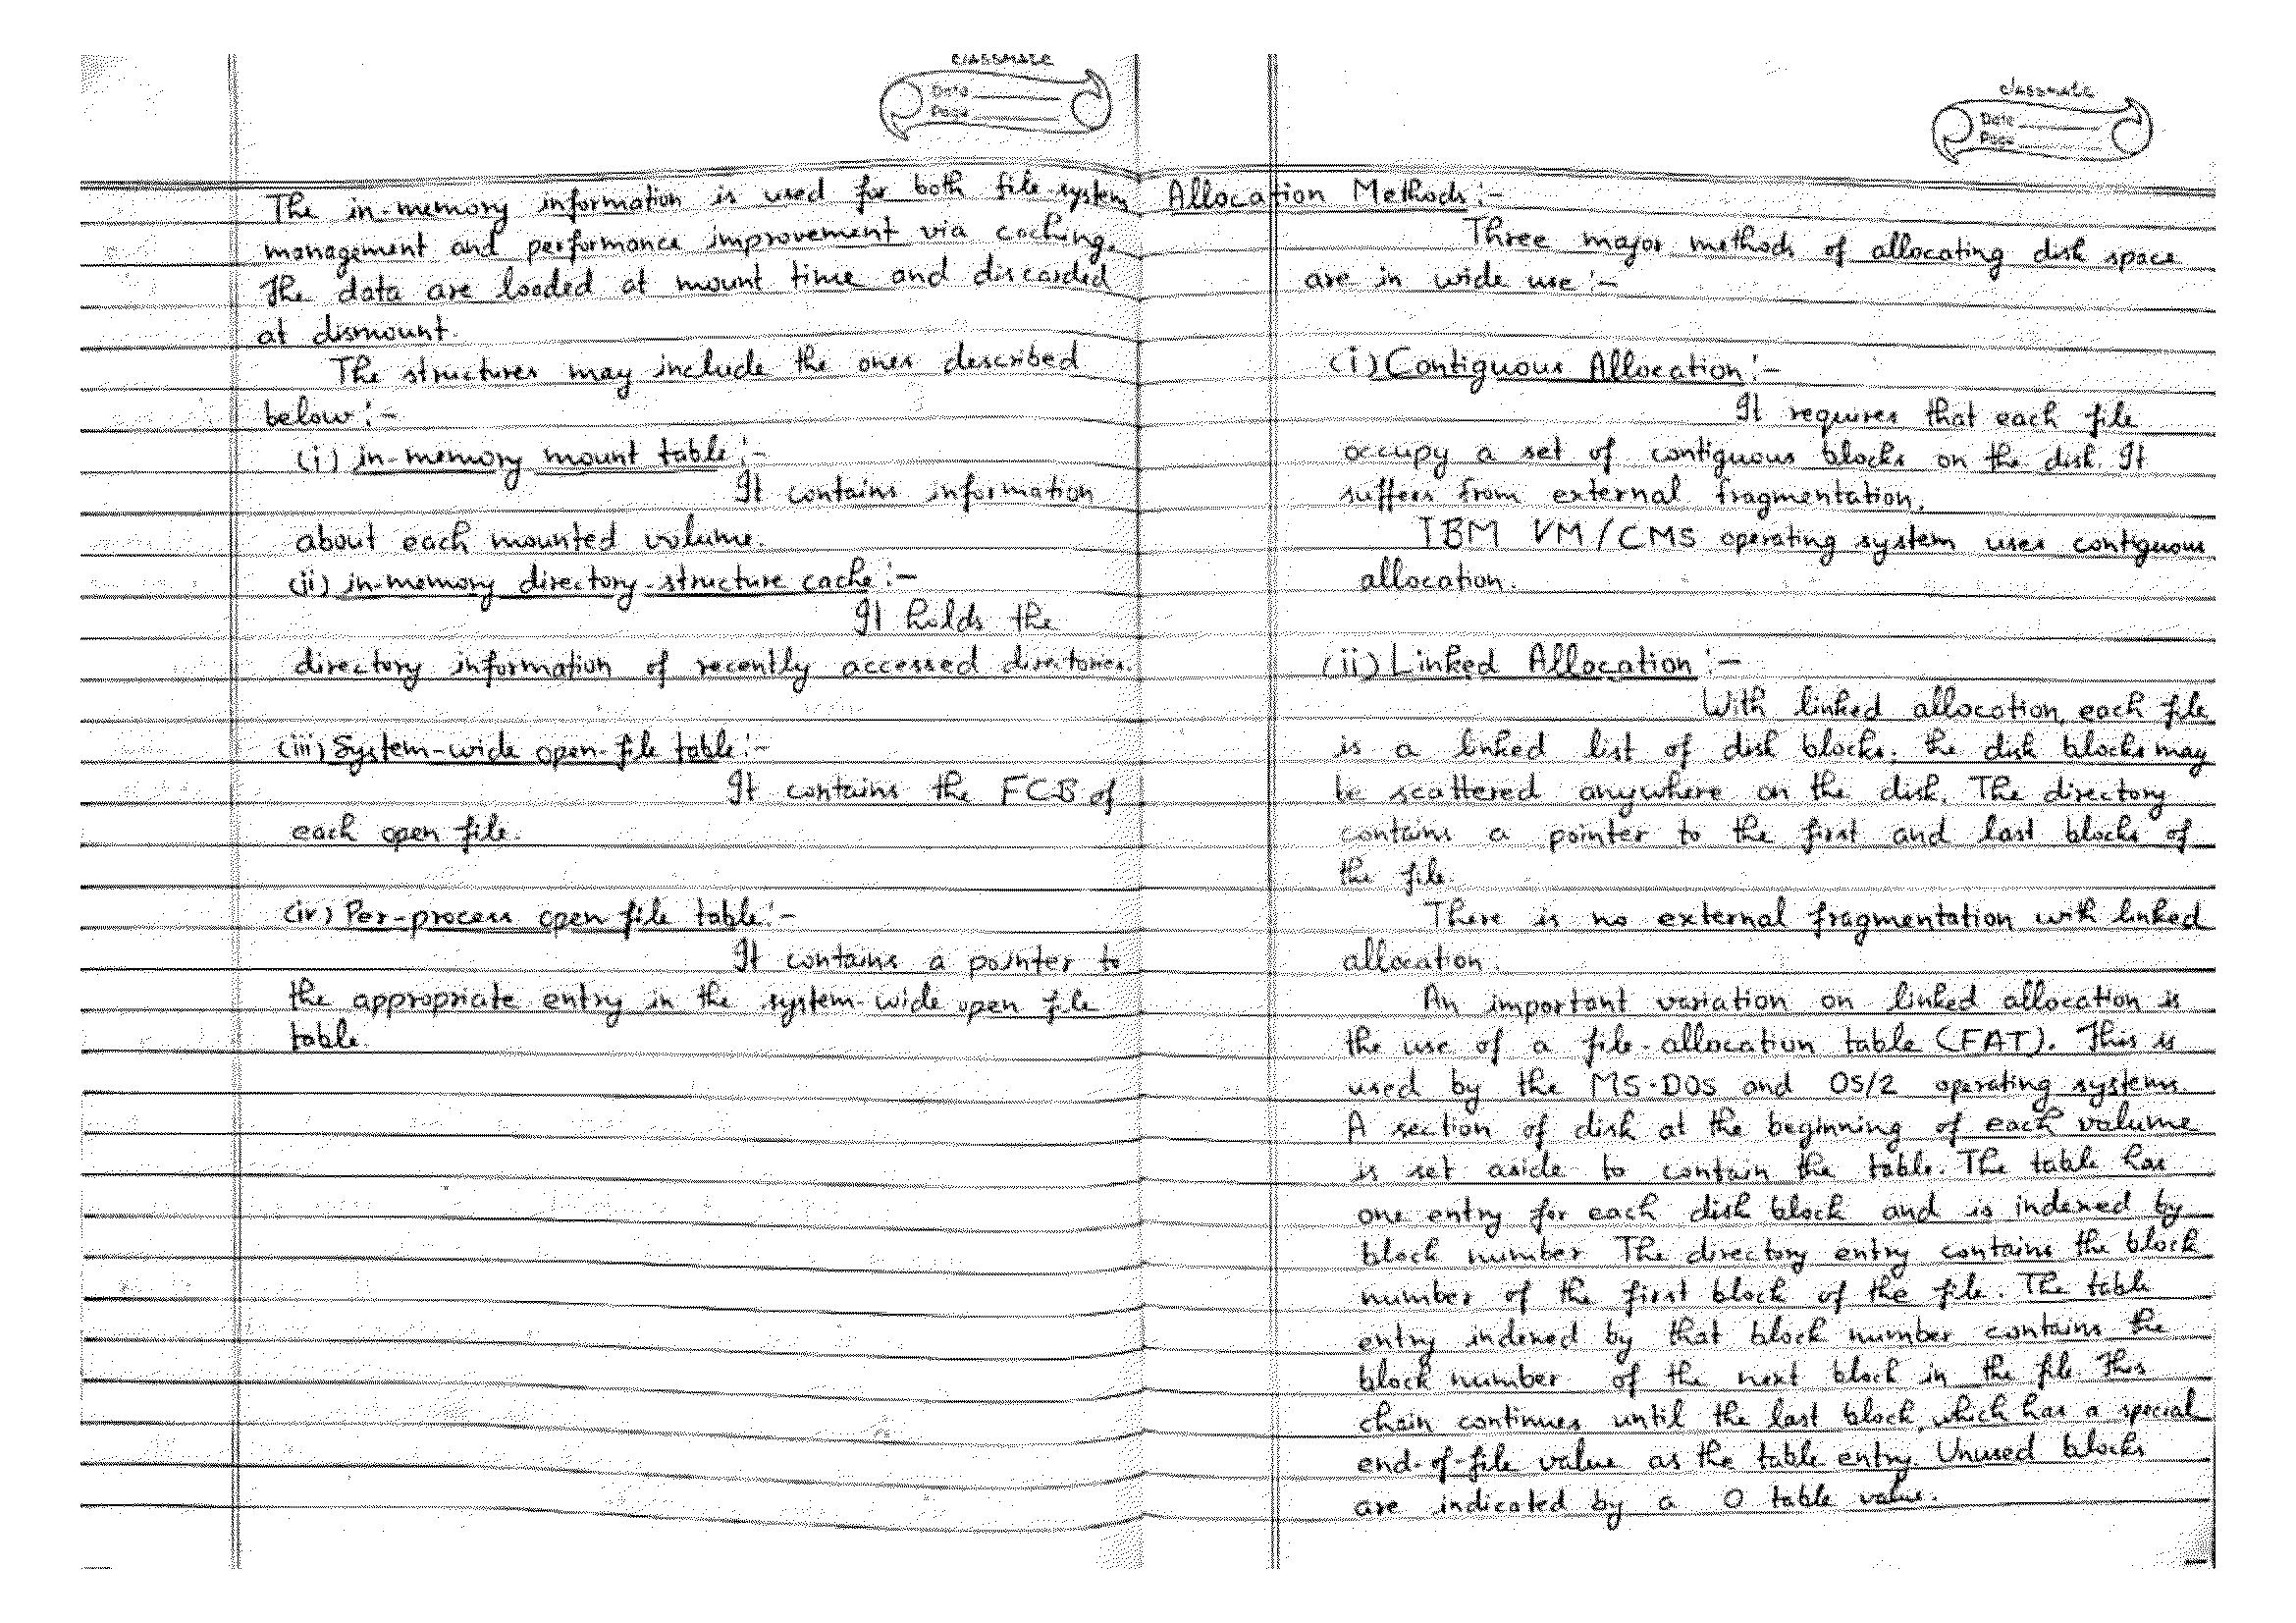 classmate
Date
Page
The in-memory information is used for both file-system
management and performance improvement via caching.
The data are loaded at mount time and discarded
at dismount.
The structures may include the ones described
below:-
(i) in-memory mount table:-
It contains information
about each mounted volume.
(ii) in-memory directory-structure cache:-
It holds the
directory information of recently accessed directories.
(iii) System-wide open-file table:-
It contains the FCB of
each open file.
(iv) Per-process open file table:-
It contains a pointer to
the appropriate entry in the system-wide open file
table.
classmate
Date
Page
Allocation Methods:-
Three major methods of allocating disk space
are in wide use:-
(i) Contiguous Allocation:-
It requires that each file
occupy a set of contiguous blocks on the disk. It
suffers from external fragmentation.
IBM VM/CMS operating system uses contiguous
allocation.
(ii) Linked Allocation:-
With linked allocation, each file
is a linked list of disk blocks; the disk blocks may
be scattered anywhere on the disk. The directory
contains a pointer to the first and last blocks of
the file.
There is no external fragmentation with linked
allocation.
An important variation on linked allocation is
the use of a file-allocation table (FAT). This is
used by the MS-DOS and OS/2 operating systems.
A section of disk at the beginning of each volume
is set aside to contain the table. The table has
one entry for each disk block and is indexed by
block number. The directory entry contains the block
number of the first block of the file. The table
entry indexed by that block number contains the
block number of the next block in the file. This
chain continues until the last block, which has a special
end-of-file value as the table entry. Unused blocks
are indicated by a 0 table value.